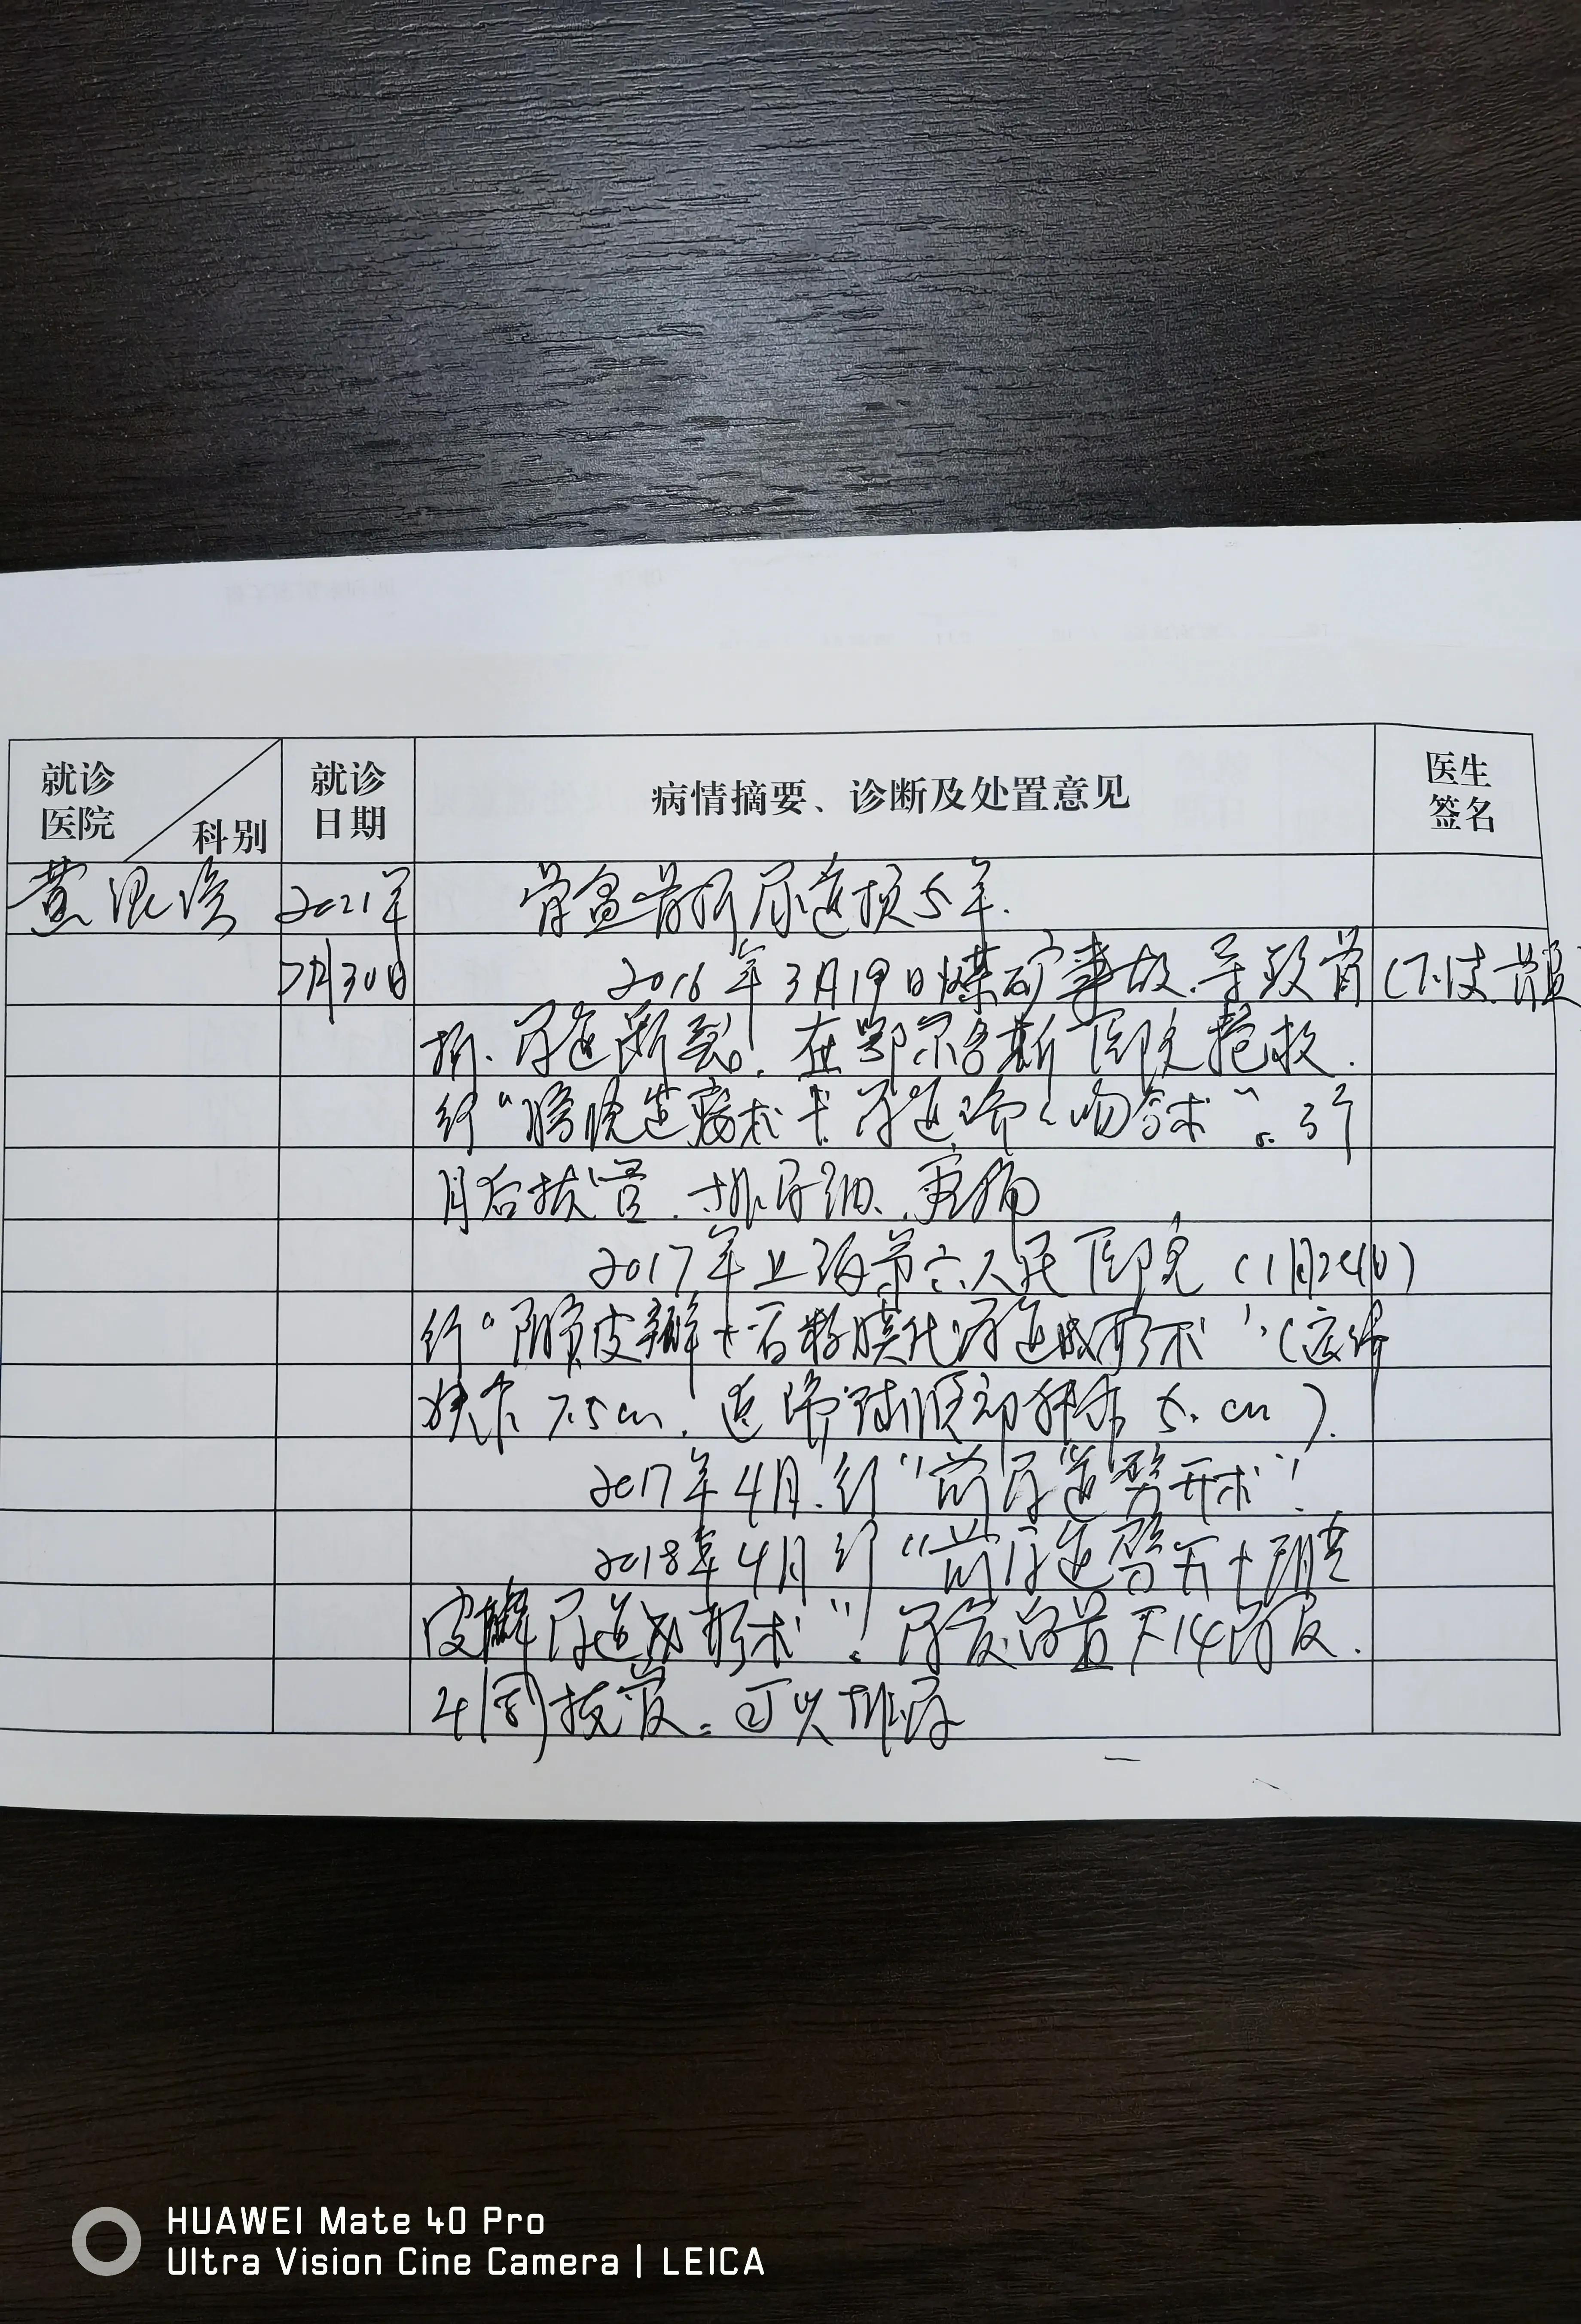 就诊 医院 科别 就诊 日期 病情摘要、诊断及处置意见 医生 签名
黄 2021年 骨盆骨折尿道损5年.
7月30日 2016年3月19日煤矿事故.导致骨(下肢.骨盆
折.尿道断裂.在鄂尔多斯医院抢救.
行“膀胱造瘘术+尿道吻合术”.3个
月后拔管.排尿细.
2017年上海第六人民医院(1月24日)
行“阴囊皮瓣+舌粘膜代尿道成形术”(
缺 7.5cm. 5.cm).
2017年4月.行“前尿道劈开术”!
2018年4月行“前尿道劈开+阴囊
皮瓣尿道成形术”!尿管留置F14
4周拔管.可以排尿
HUAWEI Mate 40 Pro
Ultra Vision Cine Camera | LEICA